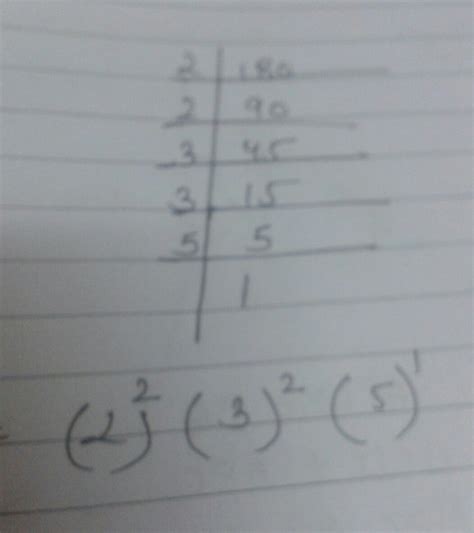 2 | 180
2 | 90
3 | 45
3 | 15
5 | 5
| 1
(2)² (3)² (5)¹